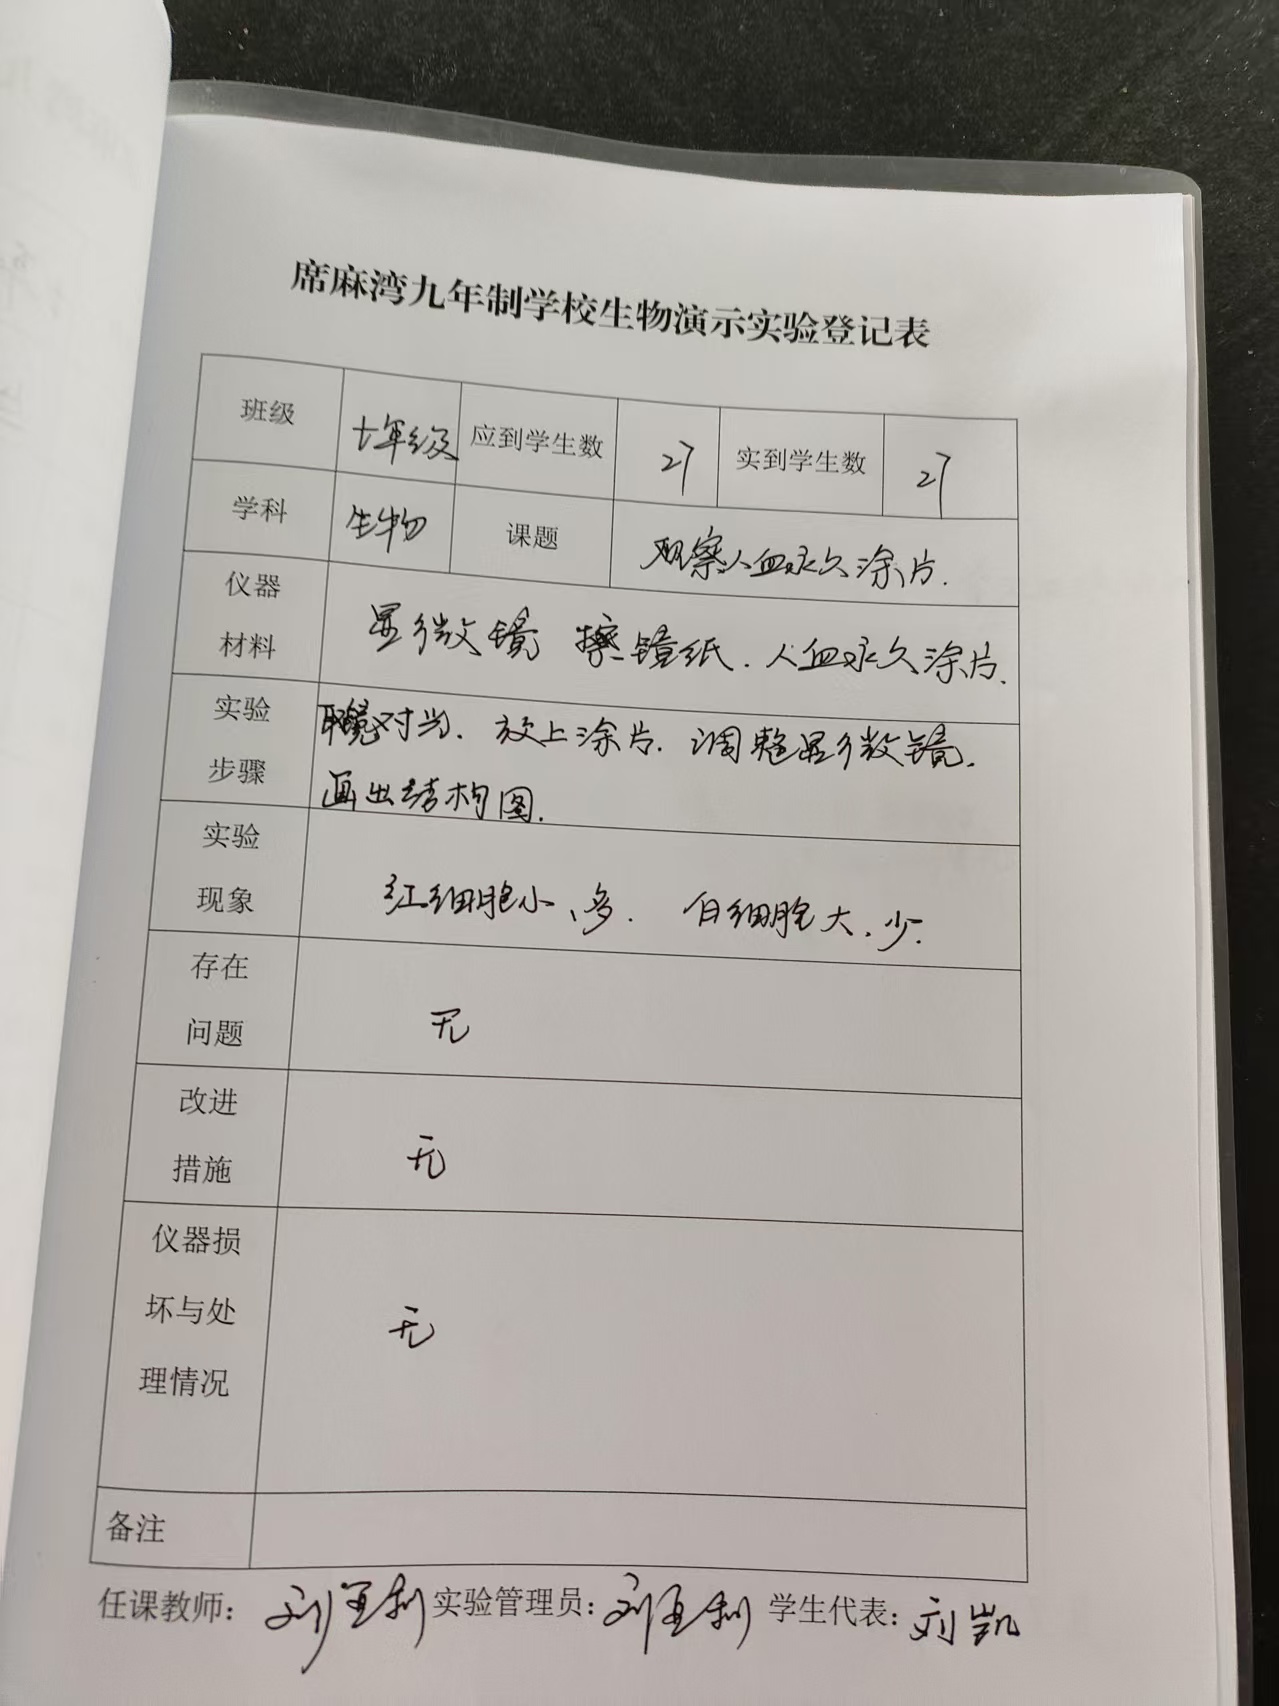 席麻湾九年制学校生物演示实验登记表
班级 七年级 应到学生数 27 实到学生数 27
学科 生物 课题 观察人血永久涂片.
仪器
材料
显微镜 擦镜纸. 人血永久涂片.
实验
步骤
取镜对光. 放上涂片. 调整显微镜.
画出结构图.
实验
现象
红细胞小、多. 白细胞大、少.
存在
问题
无
改进
措施
无
仪器损
坏与处
理情况
无
备注
任课教师: 实验管理员: 学生代表: 刘凯